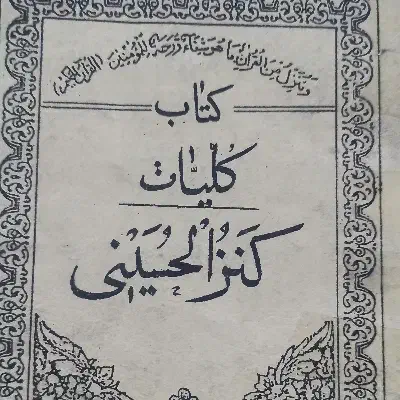 وَنُنَزِّلُ مِنَ الْقُرْآنِ مَا هُوَ شِفَاءٌ وَرَحْمَةٌ لِلْمُؤْمِنِينَ (القرآن الكريم)
كتاب
كُلِّيَّات
كَنزُ الحُسَيْنِی